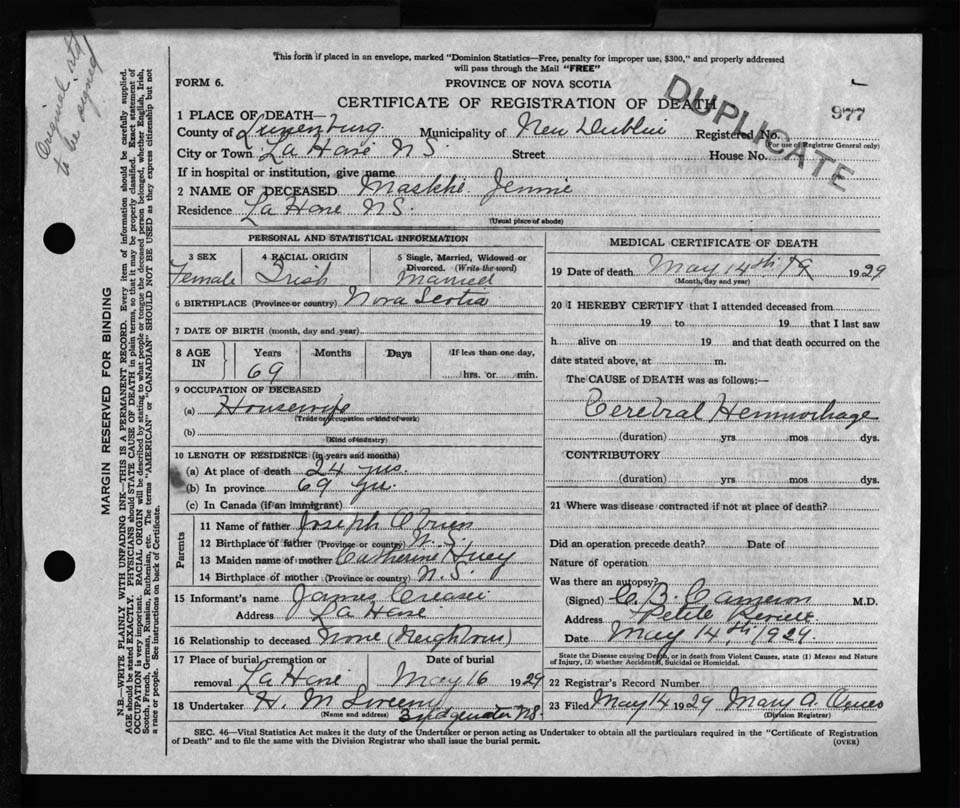 Original
to be signed
This form if placed in an envelope, marked "Dominion Statistics—Free, penalty for improper use, $300," and properly addressed
will pass through the Mail "FREE"
FORM 6.
PROVINCE OF NOVA SCOTIA
CERTIFICATE OF REGISTRATION OF DEATH
DUPLICATE
977
1 PLACE OF DEATH—
County of Lunenburg Municipality of New Dublin Registered No.
(For use of Registrar General only)
City or Town La Have N S. Street House No.
If in hospital or institution, give name
2 NAME OF DECEASED Jennie
Residence La Have N.S.
(Usual place of abode)
PERSONAL AND STATISTICAL INFORMATION
3 SEX 4 RACIAL ORIGIN 5 Single, Married, Widowed or
Divorced. (Write the word)
Female Irish Married
6 BIRTHPLACE (Province or country) Nova Scotia
7 DATE OF BIRTH (month, day and year)
8 AGE IN Years Months Days If less than one day,
69 hrs. or min.
9 OCCUPATION OF DECEASED
(a) Housewife
(Trade occupation or kind of work)
(b)
(Kind of industry)
10 LENGTH OF RESIDENCE (in years and months)
(a) At place of death 24 yrs.
(b) In province 69 yrs.
(c) In Canada (if an immigrant)
Parents
11 Name of father Joseph O'Brien
12 Birthplace of father (Province or country) N.S.
13 Maiden name of mother Catherine Huey
14 Birthplace of mother (Province or country) N.S.
15 Informant's name James Creaser
Address La Have
16 Relationship to deceased None (Neighbour)
17 Place of burial, cremation or Date of burial
removal La Have May 16 1929
18 Undertaker H. M Sweeny
(Name and address) Bridgewater N.S.
MEDICAL CERTIFICATE OF DEATH
19 Date of death May 14th 19 1929
(Month, day and year)
20 I HEREBY CERTIFY that I attended deceased from
19 to 19 that I last saw
h alive on 19 and that death occurred on the
date stated above, at m.
The CAUSE of DEATH was as follows:—
Cerebral Hemmorhage
(duration) yrs mos dys.
CONTRIBUTORY
(duration) yrs mos dys.
21 Where was disease contracted if not at place of death?
Did an operation precede death? Date of
Nature of operation
Was there an autopsy?
(Signed) C. B. Cameron M.D.
Address Petite Riviere
Date May 14th 1929.
State the Disease causing Death, or in death from Violent Causes, state (1) Means and Nature
of Injury, (2) whether Accidental, Suicidal or Homicidal.
22 Registrar's Record Number
23 Filed May 14 1929 Mary A.
(Division Registrar)
SEC. 46—Vital Statistics Act makes it the duty of the Undertaker or person acting as Undertaker to obtain all the particulars required in the "Certificate of Registration
of Death" and to file the same with the Division Registrar who shall issue the burial permit.
(OVER)
MARGIN RESERVED FOR BINDING
N.B.—WRITE PLAINLY WITH UNFADING INK—THIS IS A PERMANENT RECORD. Every item of information should be carefully supplied.
AGE should be stated EXACTLY. PHYSICIANS should STATE CAUSE OF DEATH in plain terms, so that it may be properly classified. Exact statement of
OCCUPATION is very important. RACIAL ORIGIN will be described by stating to what people or tongue the deceased person belonged, whether English, Irish,
Scotch, French, German, Russian, Ruthenian, etc. The terms "AMERICAN" or "CANADIAN" SHOULD NOT BE USED as they express citizenship but not
a race or people. See instructions on back of Certificate.